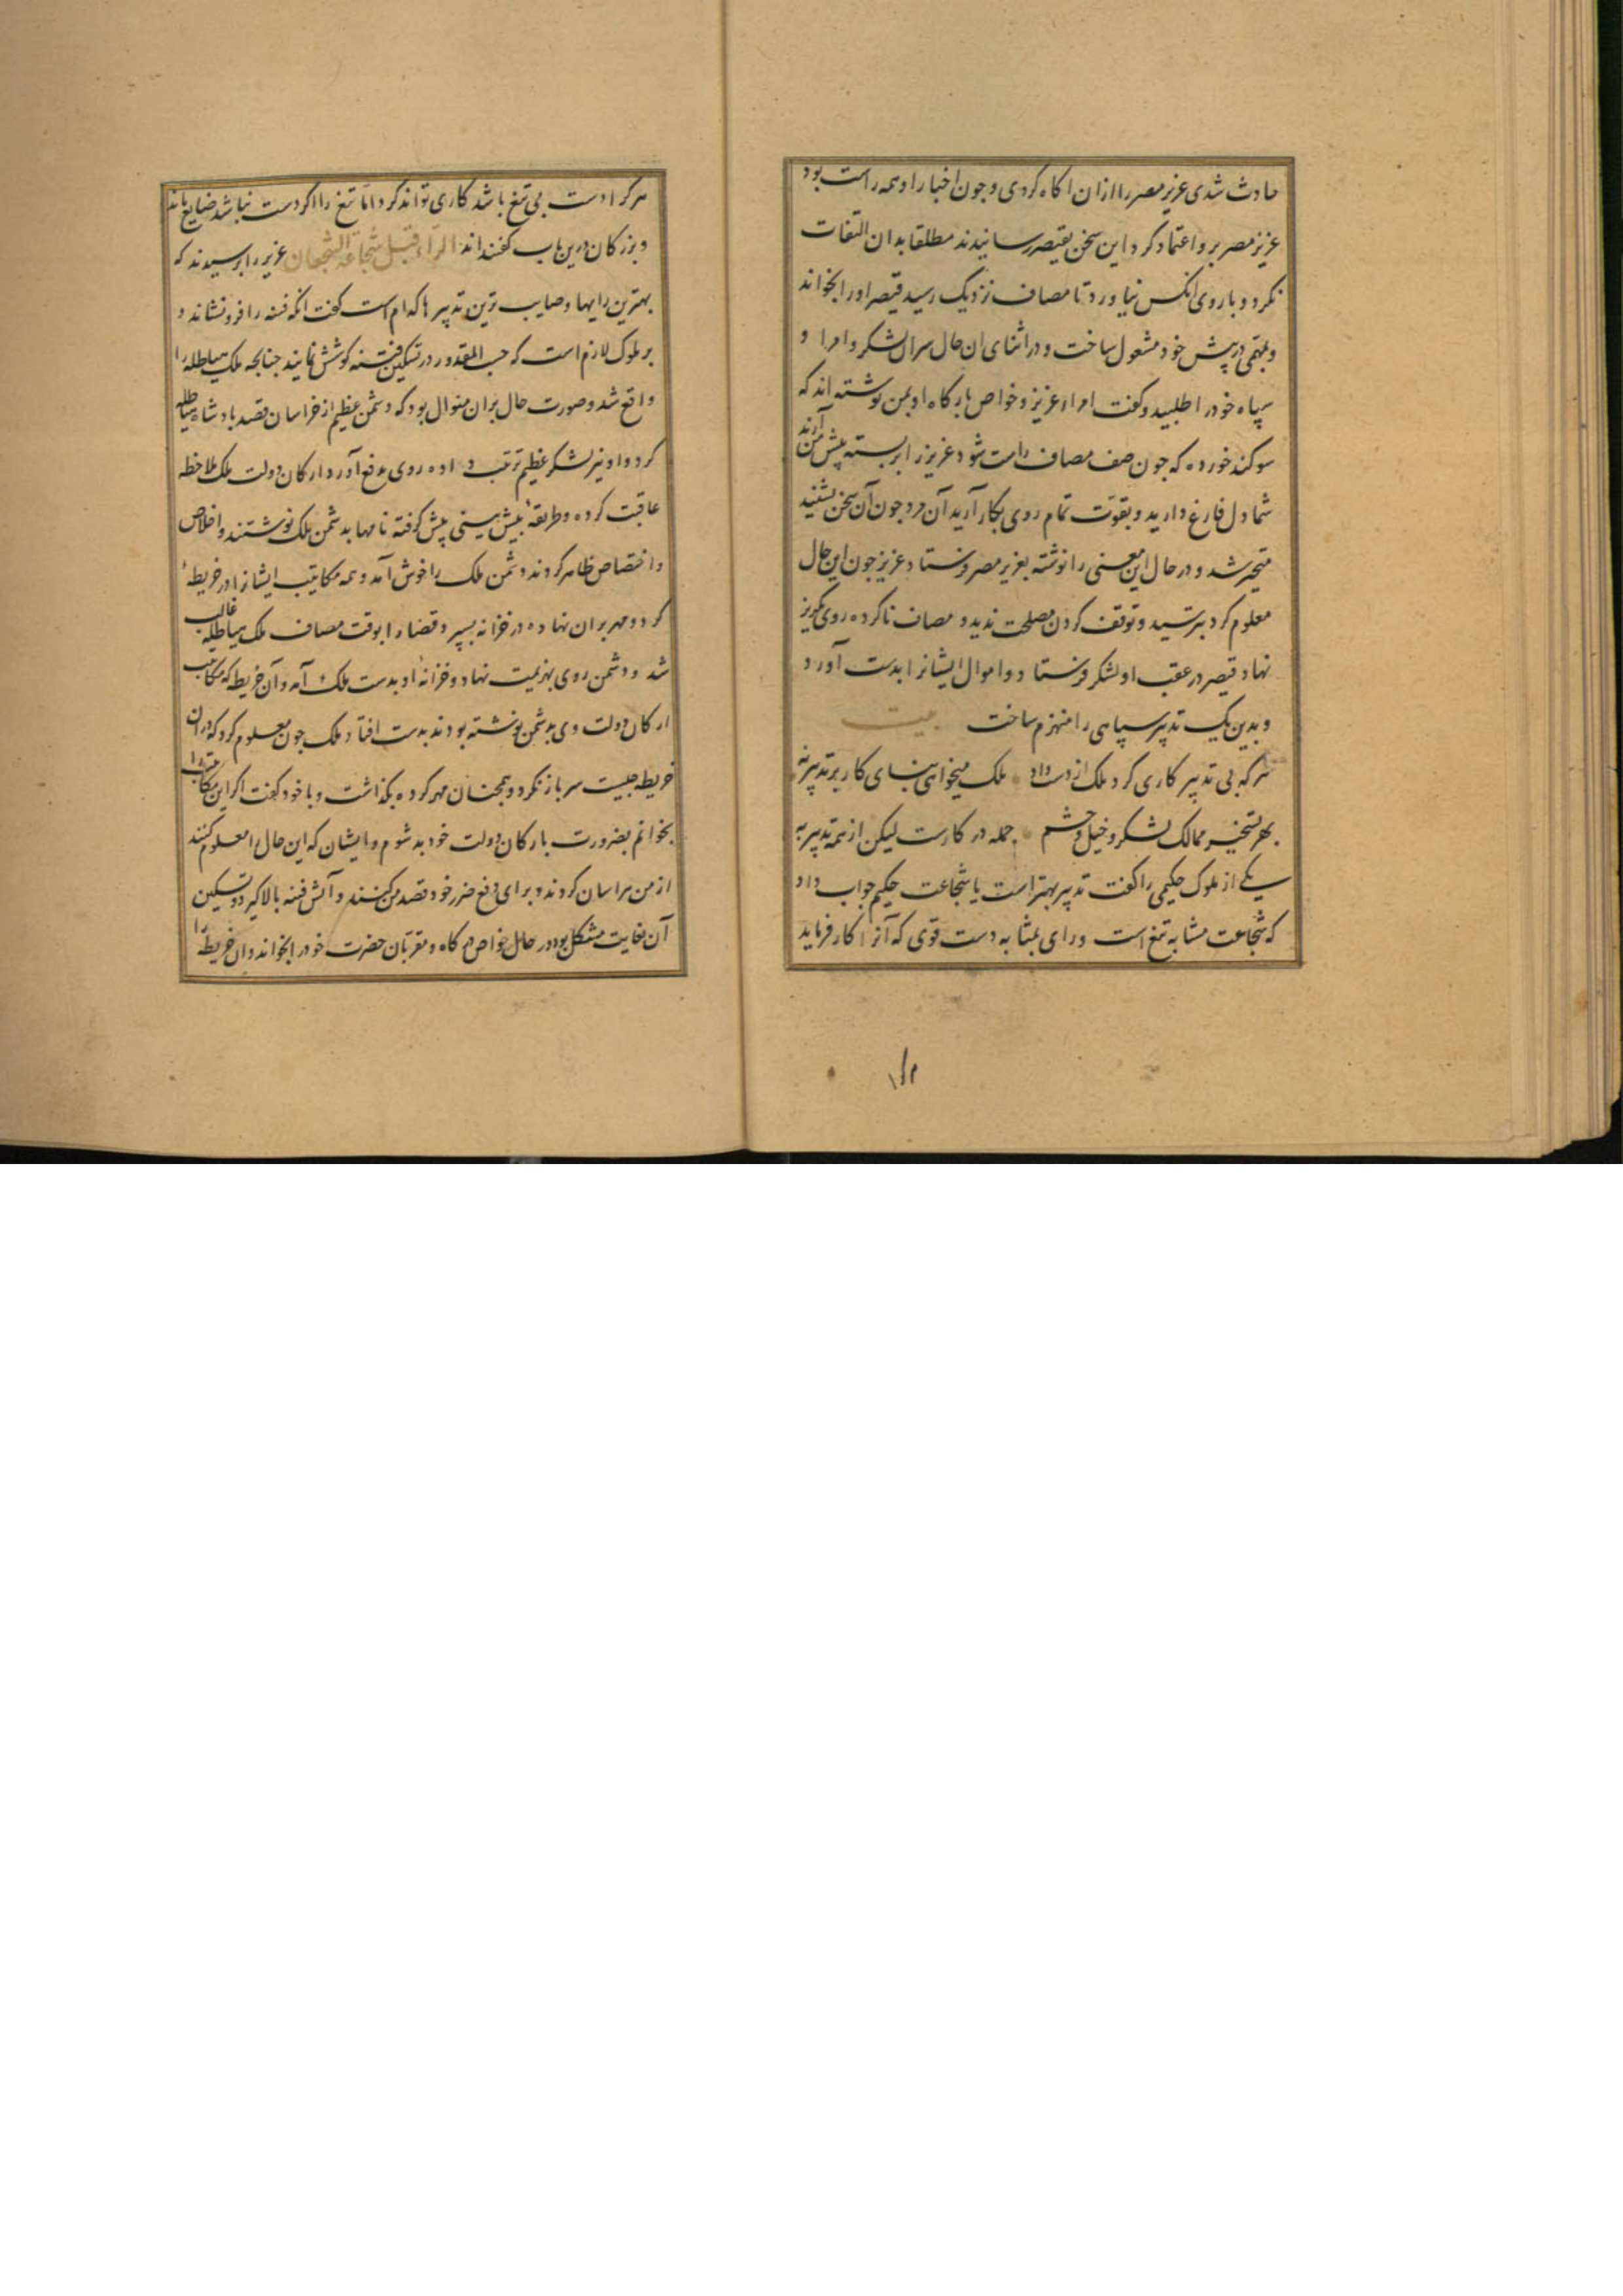 حادث شدی عزیز مصر را ازان اکاه کردی و چون اخبار او همه راست بود
عزیز مصر برو اعتماد کرد این سخن بقیصر رسانیدند مطلقا بدان التفات
نکرد و با روی انکس نیاورد تا مصاف نزدیک رسید قیصر او را بخواند
و بمهمی در پیش خود مشغول ساخت و در اثنای ان حال سران لشکر و امرا و
سپاه خود را طلبید و کفت امراء عزیز و خواص بارکاه او بمن نوشته اند که
سوکند خورده که جون صف مصاف راست شود عزیز را بر بسته پیش من آرند
شما دل فارغ دارید و بقوت تمام روی بکار آرید آن مرد جون آن سخن بشنید
متحیر شد و در حال این معنی را نوشته بعزیز مصر فرستاد عزیز جون این حال
معلوم کرد بترسید و توقف کردن مصلحت ندید و مصاف ناکرده روی بکریز
نهاد قیصر در عقب او لشکر فرستاد و اموال ایشانرا بدست آورد
و بدین یک تدبیر سپاهی را منهزم ساخت بیت
هر که بی تدبیر کاری کرد ملک از دست داد ملک میخواهی بنای کار بر تدبیر نه
بهر تسخیر ممالک لشکر و خیل و حشم جمله در کارست لیکن از همه تدبیر به
یکی از ملوک حکیمی را کفت تدبیر بهتر است یا شجاعت حکیم جواب داد
که شجاعت مشابه تیغ است و رای بمثابه دست قوی که آنرا کار فرماید
هر کرا دست بی تیغ باشد کاری تواند کرد اما تیغ را اکر دست نباشد ضایع ماند
و بزرکان درین باب کفته‌اند الراء قبل شجاعة الشجعان عزیز را پرسیدند که
بهترین رایها و صایب ترین تدبیرها کدام است کفت انکه فتنه را فرو نشاند و
بر ملوک لازم است که حسب المقدور در تسکین فتنه کوشش نمایند جنانجه ملک هیاطله را
واقع شد و صورت حال بران منوال بود که دشمن عظیم از خراسان قصد بادشاه هیاطله
کرد و او نیز لشکر عظیم ترتیب داده روی بدفع آورد ارکان دولت ملک ملاحظه
عاقبت کرده و طریقهٔ پیش بینی پیش کرفته نامها بدشمن ملک نوشتند و اخلاص
و اختصاص ظاهر کردند و دشمن ملک را خوش آمد و همه مکاتیب ایشانرا در خریطهٔ
کرد و مهر بران نهاده در خزانه بسپرد قضا را بوقت مصاف ملک هیاطله غالب
شد و دشمن روی بهزیمت نهاد و خزانهٔ او بدست ملک آمد و آن خریطه که مکاتیب
ارکان دولت وی بدشمن نوشته بودند بدست افتاد ملک جون معلوم کرد که دران
خریطه جیست سر باز نکرد و همجنان مهر کرده بکذاشت و با خود کفت اکر این مکاتیب را
بخوانم بضرورت با ارکان دولت خود بد شوم و ایشان که این حال را معلوم کنند
از من هراسان کردند و برای دفع ضرر خود قصد من کنند و آتش فتنه بالا کیرد و تسکین
آن بغایت مشکل بود در حال خواص درکاه و مقربان حضرت خود را بخواند و ان خریطه را